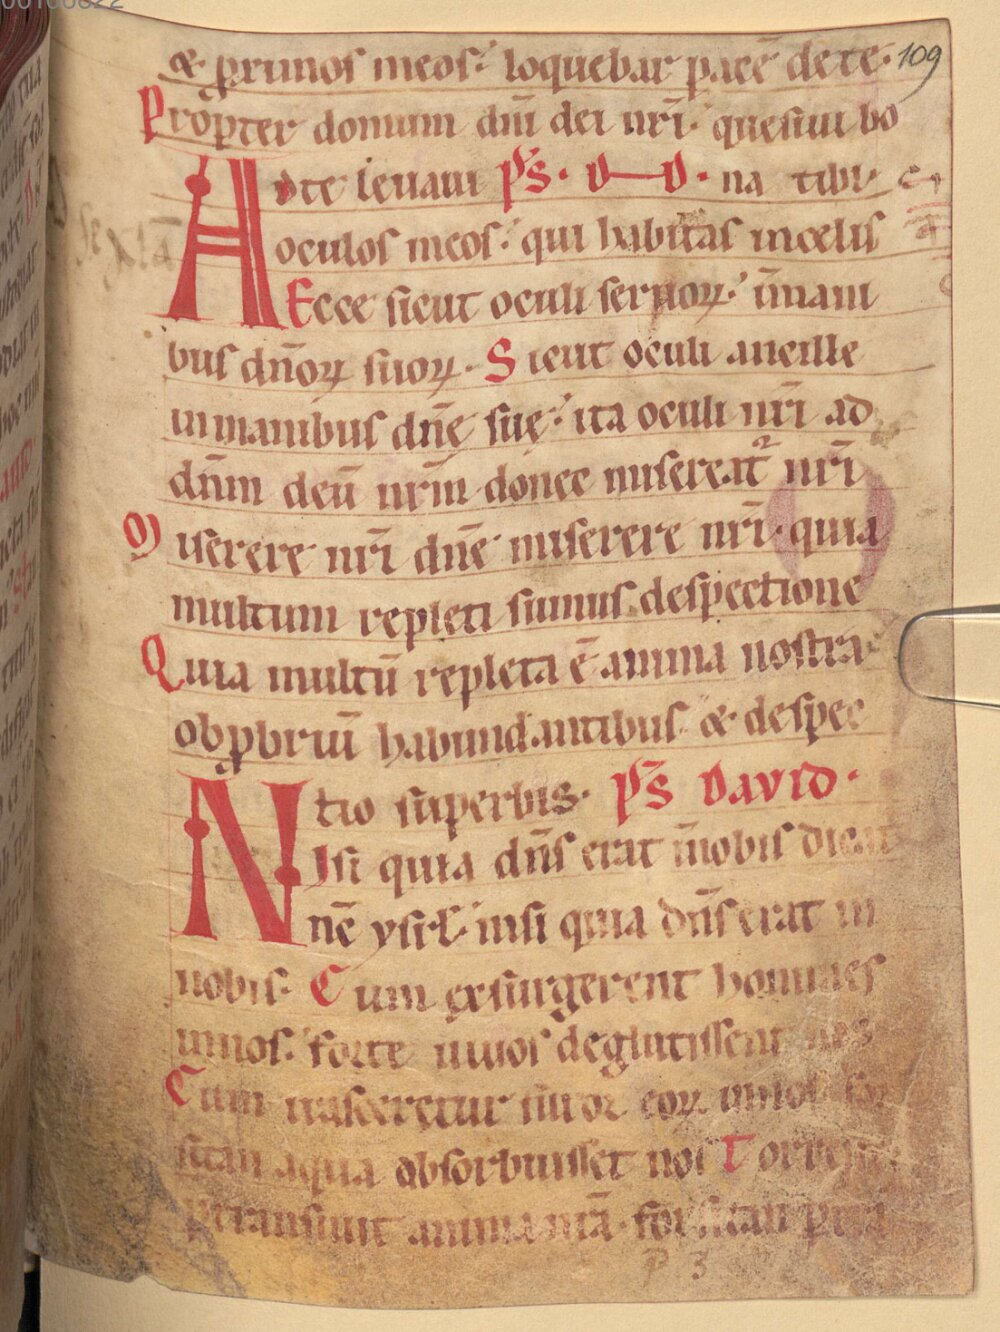 & primos meos. loquebar pacē de te. 109
Propter domum dn̄i dei nr̄i. quesiui bo
Ad te leuaui ps. D—D. na tibi
oculos meos. qui habitas in celis
Ecce sicut oculi seruoꝝ. in̄ mani
bus dn̄oꝝ suoꝝ. Sicut oculi ancille
in manibus dn̄ę suę. ita oculi nr̄i ad
dn̄m deū nr̄m donec misereat᷑ nr̄i
Miserere nr̄i dn̄e miserere nr̄i. quia
multum repleti sumus despectione
Quia multū repleta ē anima nostra
obꝓbriū habundantibus & despec
tio superbis. ps David.
Nisi quia dn̄s erat in̄ nobis dicat
nc̄ ysrł. nisi quia dn̄s erat in
nobis. Cum exsurgerent homines
in nos. forte uiuos deglutissent nos
Cum irasceretur furor eoꝝ in nos for
sitan aqua obsorbuisset nos Torren
ꝑtransiuit anima nr̄a. forsitan ꝑtra
P 3